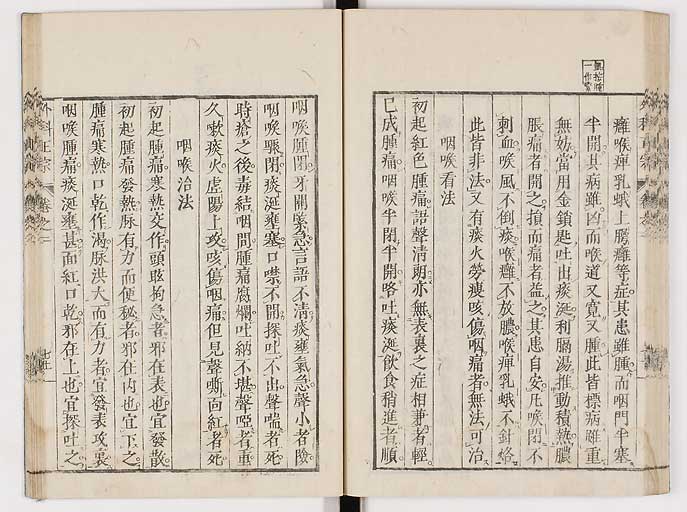 癰喉痺乳蛾上腭癰等症其患雖腫而咽門半塞
半開其病雖凶而喉道又寬又腫此皆標病雖重
無妨當用金鎖匙吐出痰涎利膈湯推動積熱膿
脹痛者開之損而痛者益之其患自安凡喉閉不
刺血喉風不倒痰喉癰不放膿喉痺乳蛾不針烙
此皆非法又有痰火勞瘦咳傷咽痛者無法可治
咽喉看法
初起紅色腫痛語聲清朗亦無表裏之症相兼者輕
已成腫痛咽喉半閉半開咯吐痰涎飲食稍進者順
咽喉腫閉牙關緊急言語不清痰壅氣急聲小者險
咽喉驟閉痰涎壅塞口噤不開探吐不出聲喘者死
時瘡之後毒結咽間腫痛腐爛吐納不堪聲啞者重
久嗽痰火虛陽上攻咳傷咽痛但見聲嘶面紅者死
咽喉治法
初起腫痛寒熱交作頭眩拘急者邪在表也宜發散
初起腫痛發熱脉有力而便秘者邪在内也宜下之
腫痛寒熱口乾作渴脉洪大而有力者宜發表攻裏
咽喉腫痛痰涎壅甚面紅口乾邪在上也宜探吐之
外科正宗